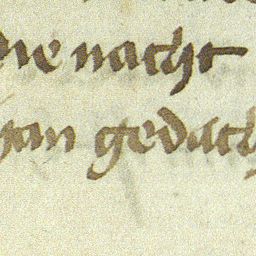 die nacht
man gedach